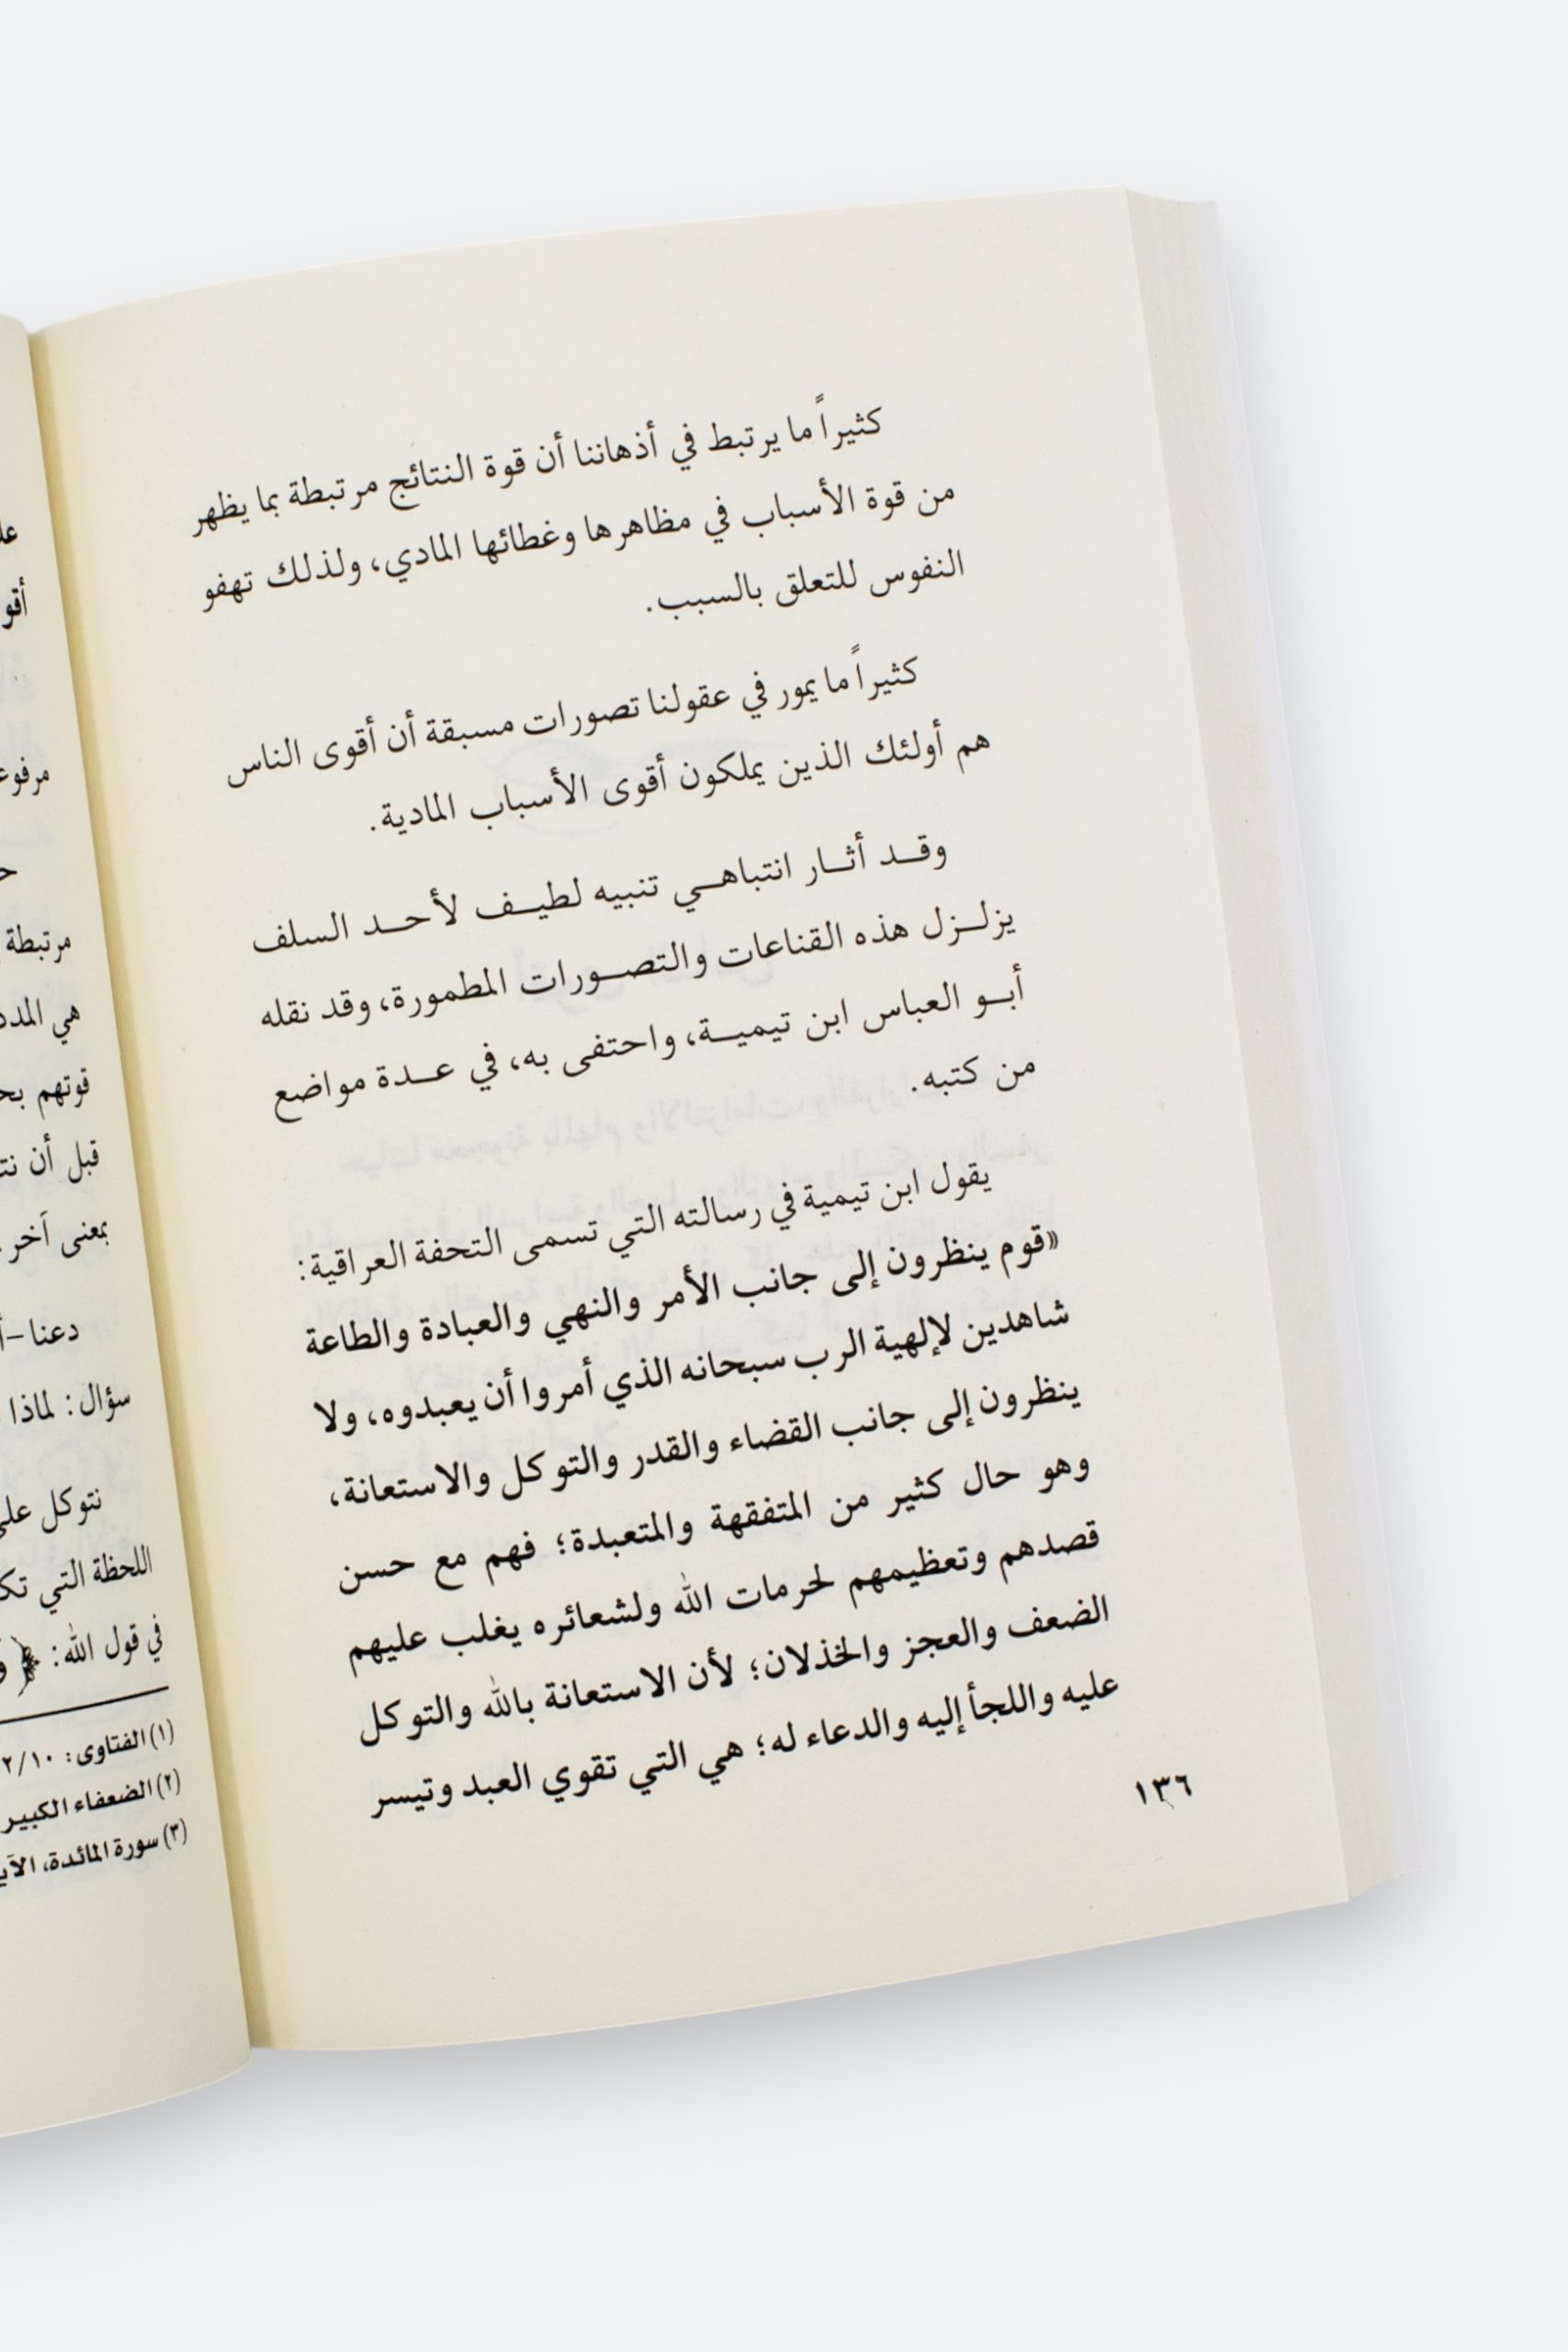 كثيراً ما يرتبط في أذهاننا أن قوة النتائج مرتبطة بما يظهر
من قوة الأسباب في مظاهرها وغطائها المادي، ولذلك تهفو
النفوس للتعلق بالسبب.
كثيراً ما يمور في عقولنا تصورات مسبقة أن أقوى الناس
هم أولئك الذين يملكون أقوى الأسباب المادية.
وقد أثار انتباهي تنبيه لطيف لأحد السلف
يزلزل هذه القناعات والتصورات المطمورة، وقد نقله
أبو العباس ابن تيمية، واحتفى به، في عدة مواضع
من كتبه.
يقول ابن تيمية في رسالته التي تسمى التحفة العراقية:
«قوم ينظرون إلى جانب الأمر والنهي والعبادة والطاعة
شاهدين لإلهية الرب سبحانه الذي أمروا أن يعبدوه، ولا
ينظرون إلى جانب القضاء والقدر والتوكل والاستعانة،
وهو حال كثير من المتفقهة والمتعبدة؛ فهم مع حسن
قصدهم وتعظيمهم لحرمات الله ولشعائره يغلب عليهم
الضعف والعجز والخذلان؛ لأن الاستعانة بالله والتوكل
عليه واللجأ إليه والدعاء له؛ هي التي تقوي العبد وتيسر
١٣٦
مرتبطة
هي
قوتهم
قبل أن
بمعنى آخر
دعنا
سؤال: لماذا
نتوكل
اللحظة التي
في قول الله:
(١) الفتاوى:
(٢) الضعفاء الكبير
(٣) سورة المائدة،